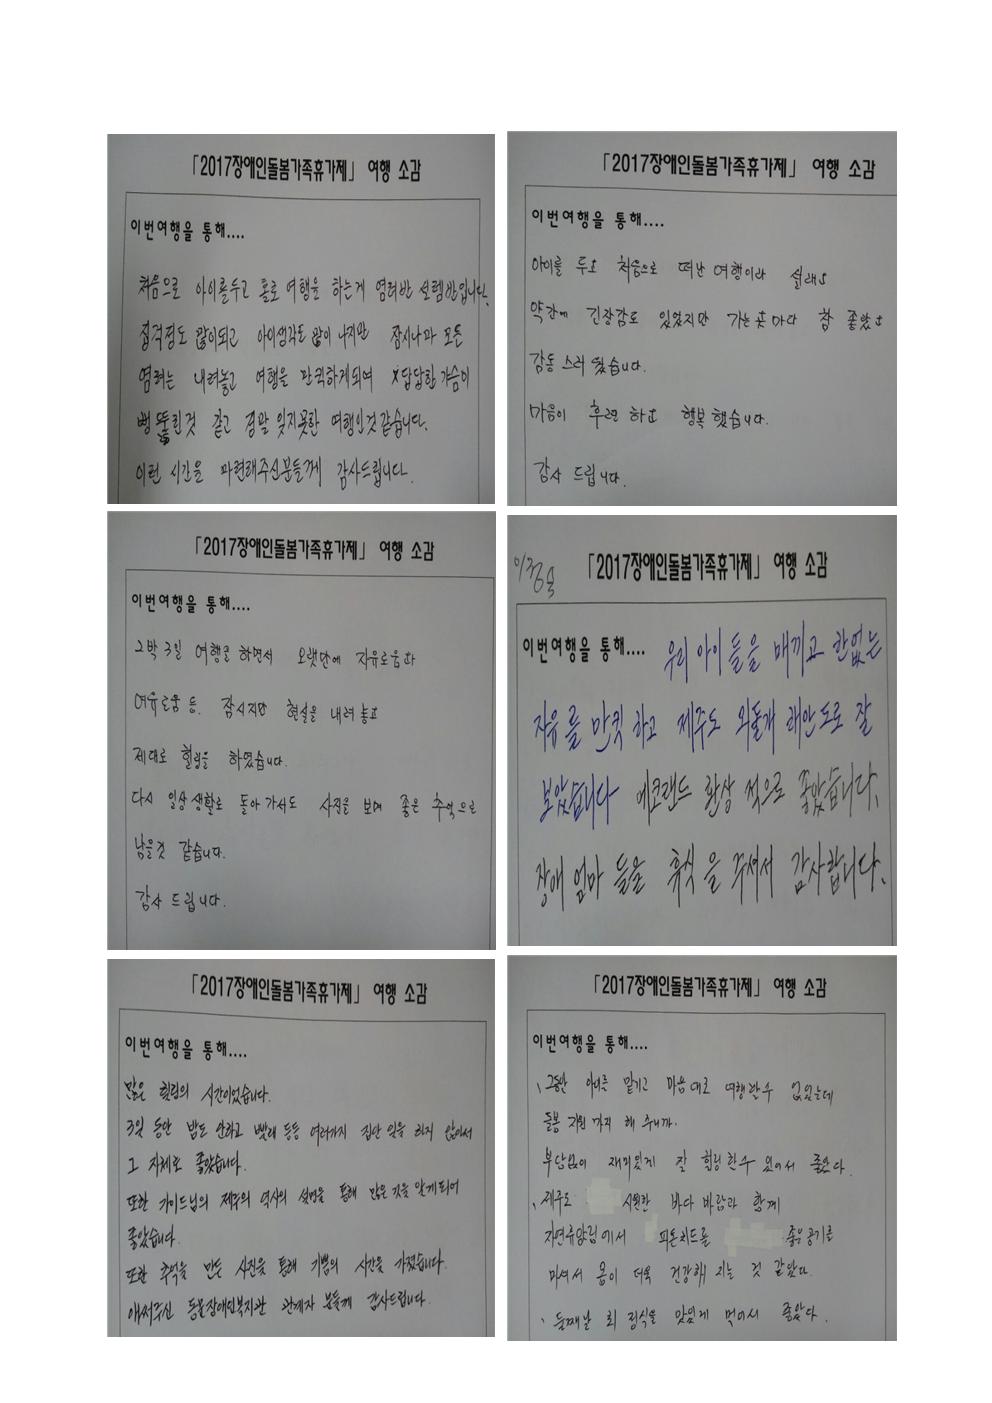 「2017장애인돌봄가족휴가제」 여행 소감
이번여행을 통해....
처음으로 아이를두고 홀로 여행을 하는게 염려반 설렘반입니다.
집걱정도 많이되고 아이생각도 많이 나지만 잠시나마 모든
염려는 내려놓고 여행을 만끽하게되여 답답한 가슴이
뻥 뚫린것 같고 정말 잊지못한 여행인것 같습니다.
이런 시간을 마련해주신분들께 감사드립니다.
「2017장애인돌봄가족휴가제」 여행 소감
이번여행을 통해....
아이를 두고 처음으로 떠난 여행이라 설레고
약간에 긴장감도 있었지만 가는곳마다 참 좋았고
감동 스러웠습니다.
마음이 후련하고 행복했습니다.
감사 드립니다.
「2017장애인돌봄가족휴가제」 여행 소감
이번여행을 통해....
2박 3일 여행을 하면서 오랫만에 자유로움과
여유로움 등. 잠시지만 현실을 내려 놓고
제대로 힐링을 하였습니다.
다시 일상생활로 돌아가서도 사진을 보며 좋은 추억으로
남을것 같습니다.
감사 드립니다.
「2017장애인돌봄가족휴가제」 여행 소감
이번여행을 통해.... 우리 아이들을 매끼고 한없는
자유를 만킷하고 제주도 외돌개 해안도로 잘
보았습니다 에코랜드 환상적으로 좋았습니다.
장애 엄마들을 휴식을 주셔서 감사합니다.
「2017장애인돌봄가족휴가제」 여행 소감
이번여행을 통해....
많은 힐링의 시간이었습니다.
3일 동안 밥도 안하고 빨래 등등 여러가지 집안 일을 하지 않아서
그 자체로 좋았습니다.
또한 가이드님의 제주의 역사의 설명을 통해 많은 것을 알게되어
좋았습니다.
또한 추억을 만든 사진을 통해 기쁨의 시간을 가졌습니다.
애써주신 동문장애인복지관 관계자 분들께 감사드립니다.
「2017장애인돌봄가족휴가제」 여행 소감
이번여행을 통해....
、그동안 아이를 맡기고 마음대로 여행할수 없었는데
돌봄 지원까지 해 주니까.
부담없이 재미있게 잘 힐링할수 있어서 좋았다.
、제주도 시원한 바다 바람과 함께
자연휴양림에서 피톤치드를 좋은공기를
마셔서 몸이 더욱 건강해 지는 것 같았다.
、둘째날 회 정식을 맛있게 먹어서 좋았다.